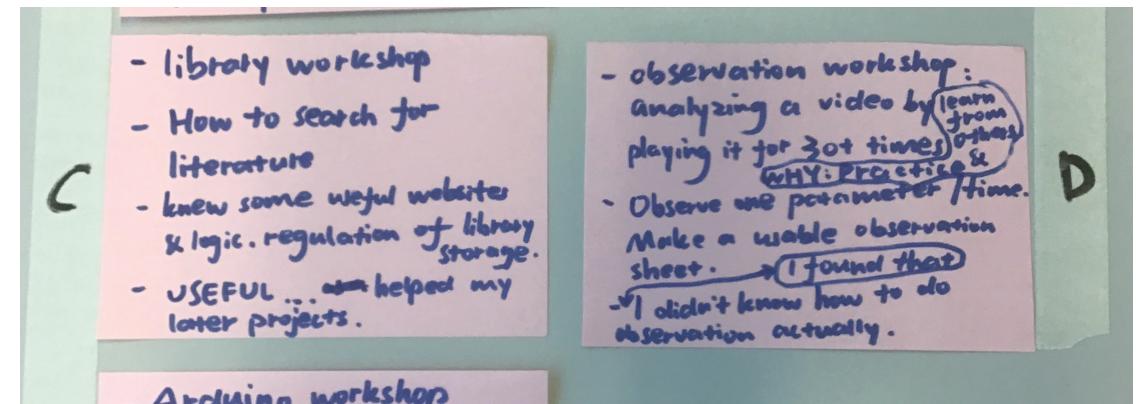 C
- library workshop
- How to search for
literature
- knew some useful websites
& logic. regulation of library
storage.
- USEFUL... helped my
later projects.
- observation workshop:
analyzing a video by
playing it for 30+ times
WHY: Practice &
learn
from
others
- Observe one parameter/time.
Make a usable observation
sheet.
I found that
- I didn't know how to do
observation actually.
D
Arduino workshop